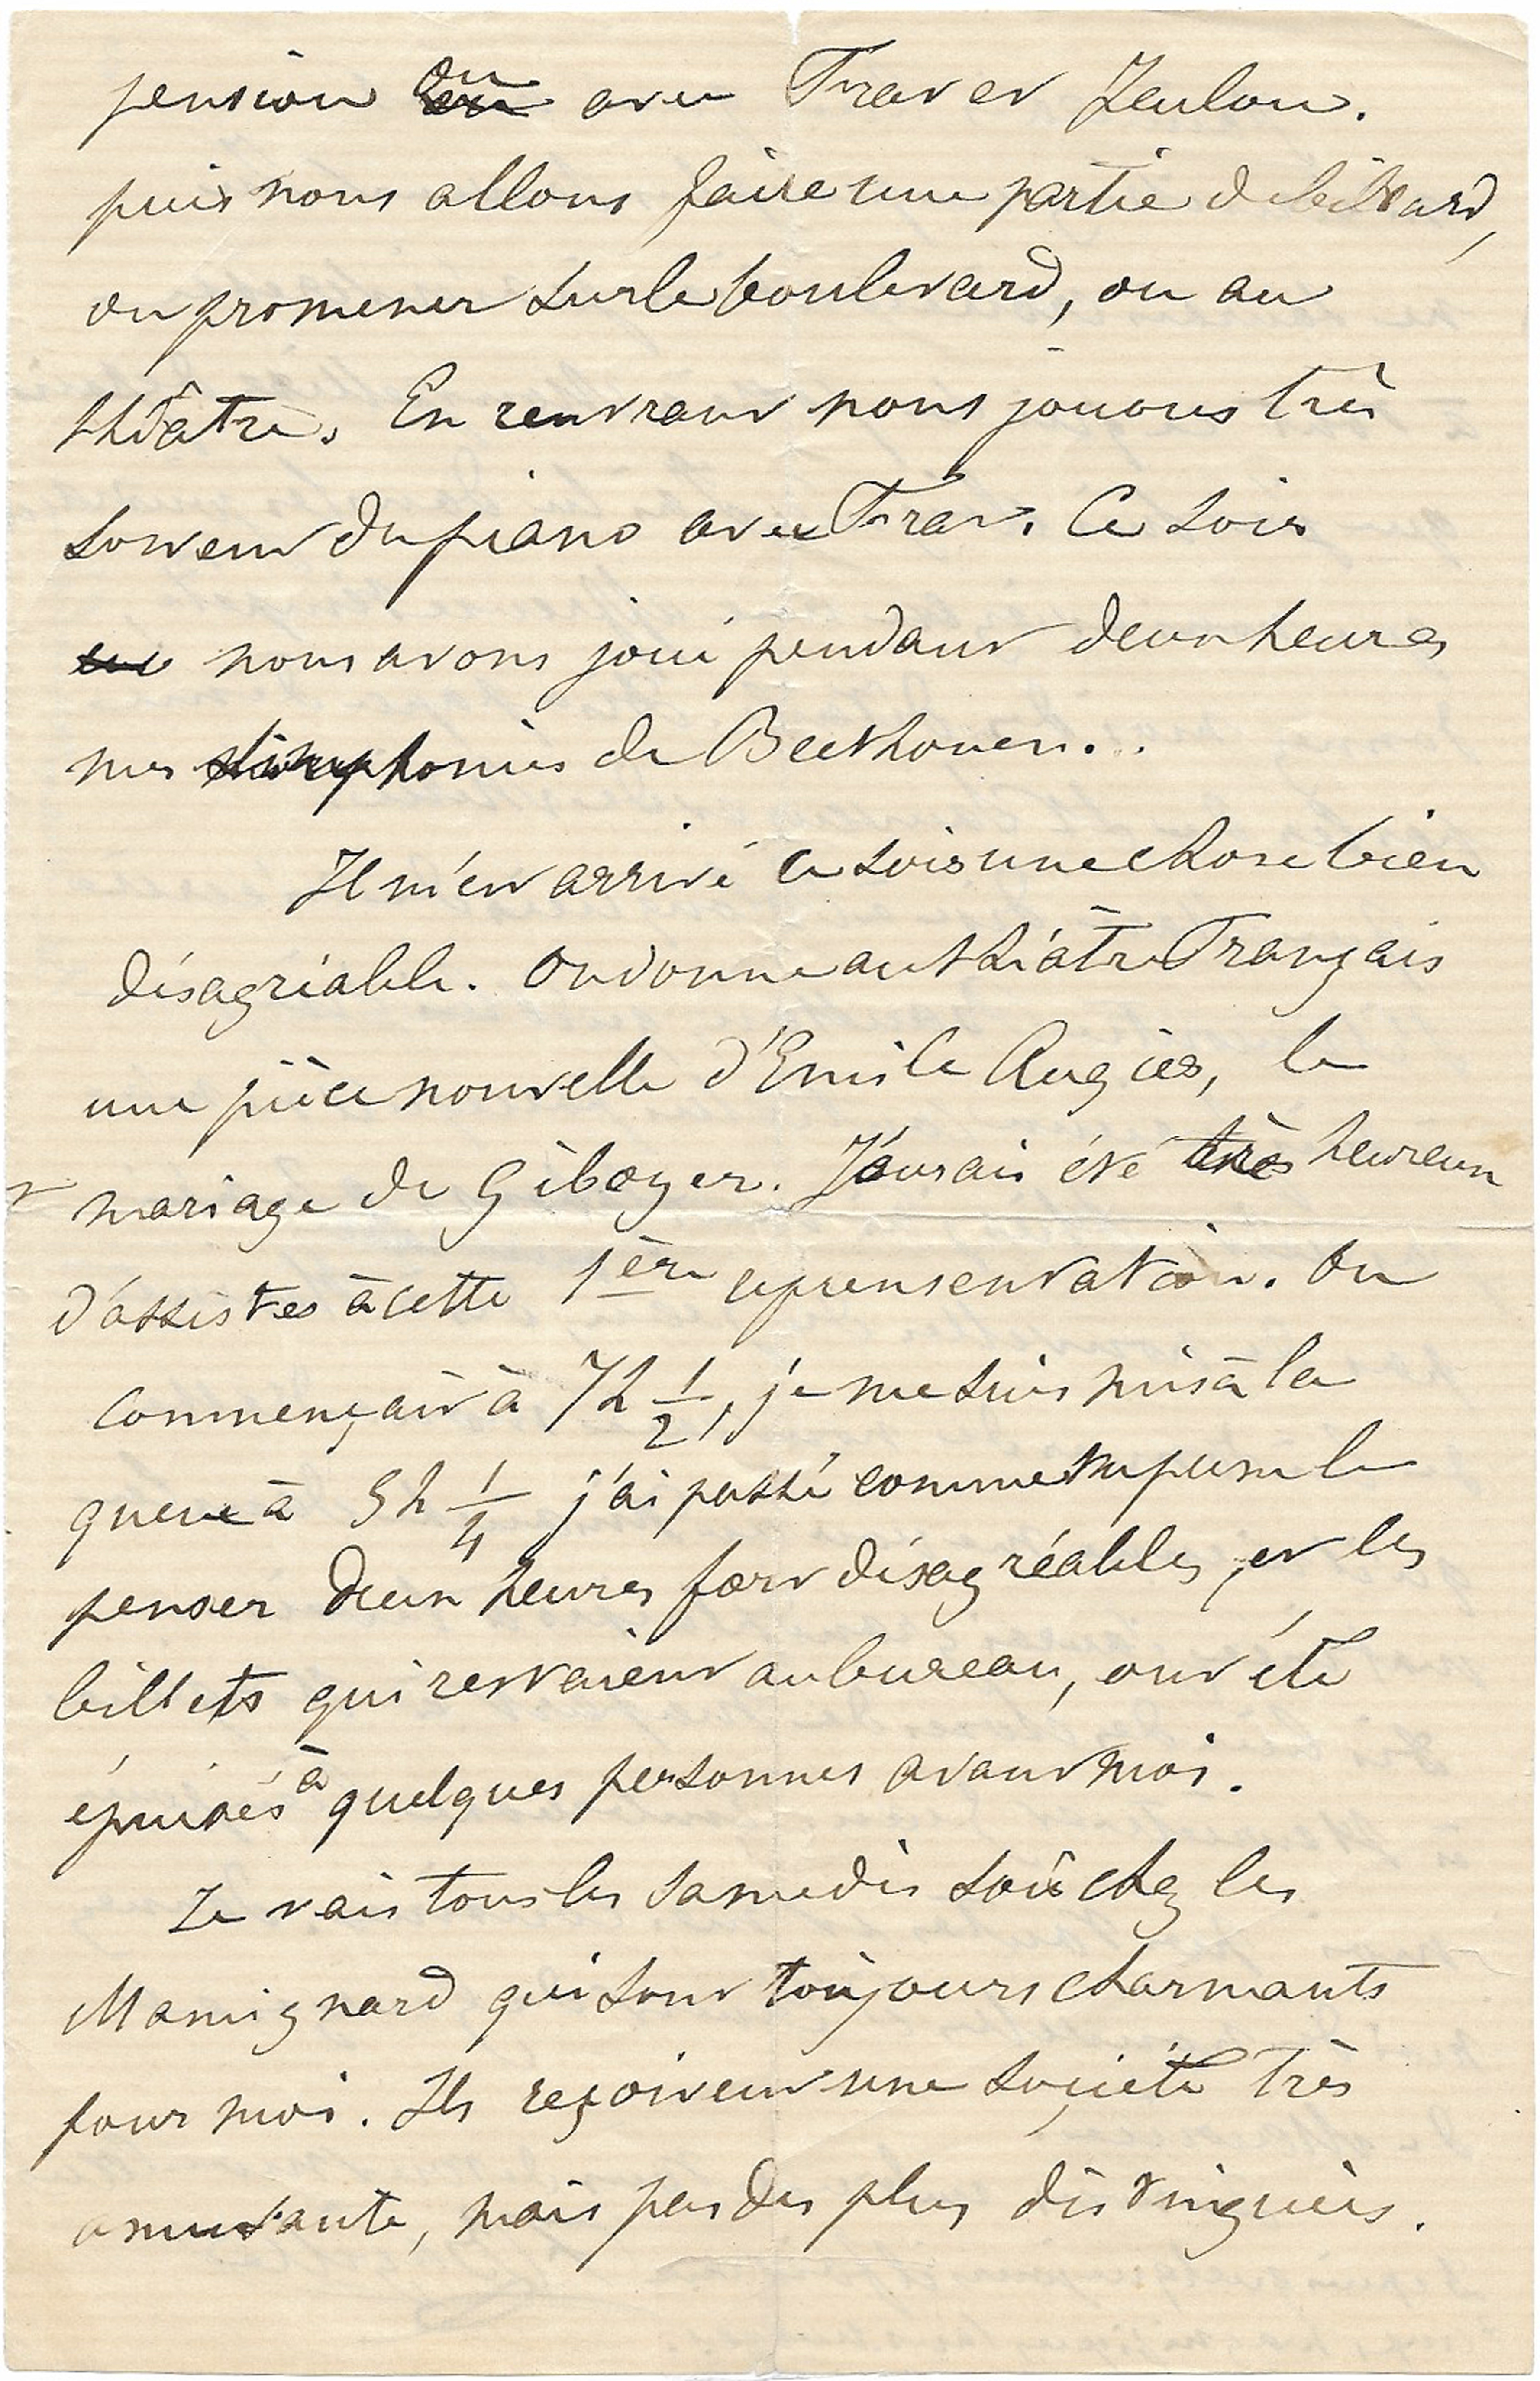 pension ou avec Frat et Zeulon.
puis nous allons faire une partie de billard,
ou promener sur le boulevard, ou au
théâtre. En rentrant nous jouons très
souvent du piano avec Frat. Ce soir
nous avons joué pendant deux heures
mes simphonies de Beethoven...
Il m'est arrivé ce soir une chose bien
désagréable. On donne au théâtre Français
une pièce nouvelle d'Emile Augier, le
mariage de Giboyer. J'aurais été très heureux
d'assister à cette 1ère représentation. On
commençait à 7h 1/2, je me suis mis à la
queue à 5h 1/4 j'ai passé comme tu peux le
penser deux heures fort désagréables, et les
billets qui restaient au bureau, ont été
épuisés à quelques personnes avant moi.
Je vais tous les samedis soir chez les
Mamignard qui sont toujours charmants
pour moi. Ils reçoivent une société très
amusante, mais pas des plus distinguées.